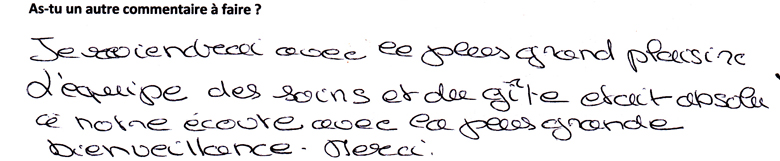 As-tu un autre commentaire à faire ?
Je reviendrai avec le plus grand plaisir
L'équipe des soins et du gîte etait absolu
à notre écoute avec la plus grande
bienveillance. Merci.